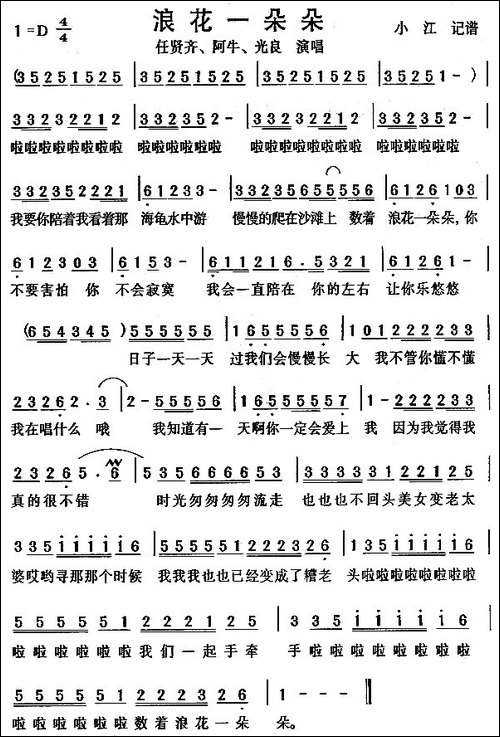 浪花一朵朵
1=D 4/4
任贤齐、阿牛、光良 演唱
小江 记谱
(35251525 | 35251525 | 35251525 | 35251-)
33232212 | 332352- | 33232212 | 332352-
啦啦啦啦啦啦啦啦 啦啦啦啦啦啦 啦啦啦啦啦啦啦啦 啦啦啦啦啦啦
332352221 | 61233- | 3323565556 | 6126103
我要你陪着我看着那 海龟水中游 慢慢的爬在沙滩上 数着 浪花一朵朵,你
612303 | 6153- | 611216.5321 | 61231-
不要害怕 你 不会寂寞 我会一直陪在 你的左右 让你乐悠悠
(654345)555555 | 1655556 | 1012222233
日子一天一天 过我们会慢慢长 大 我不管你懂不懂
23262.3 | 2-55556 | 165555557 | 1-222233
我在唱什么 哦 我知道有一 天啊你一定会爱上 我 因为我觉得我
23265.6 | 5356666653 | 33333555553
真的很不错 时光匆匆匆匆流走 也也也不回头美女变老太
33511111116 | 555551222326 | 13511111116
婆哎哟寻那那个时候 我我我也也已经变成了糟老 头啦啦啦啦啦啦啦啦
55555122212 5 | 3351111116
啦啦啦啦啦啦我们一起手牵 手啦啦啦啦啦啦啦啦
5555512222326 | 1---‖
啦啦啦啦啦啦数着浪花一朵 朵。